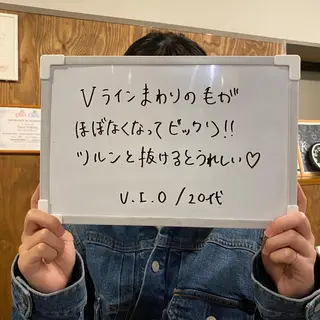 Vラインまわりの毛が
ほぼなくなってビックリ!!
ツルンと抜けるとうれしい♡
V.I.O/20代